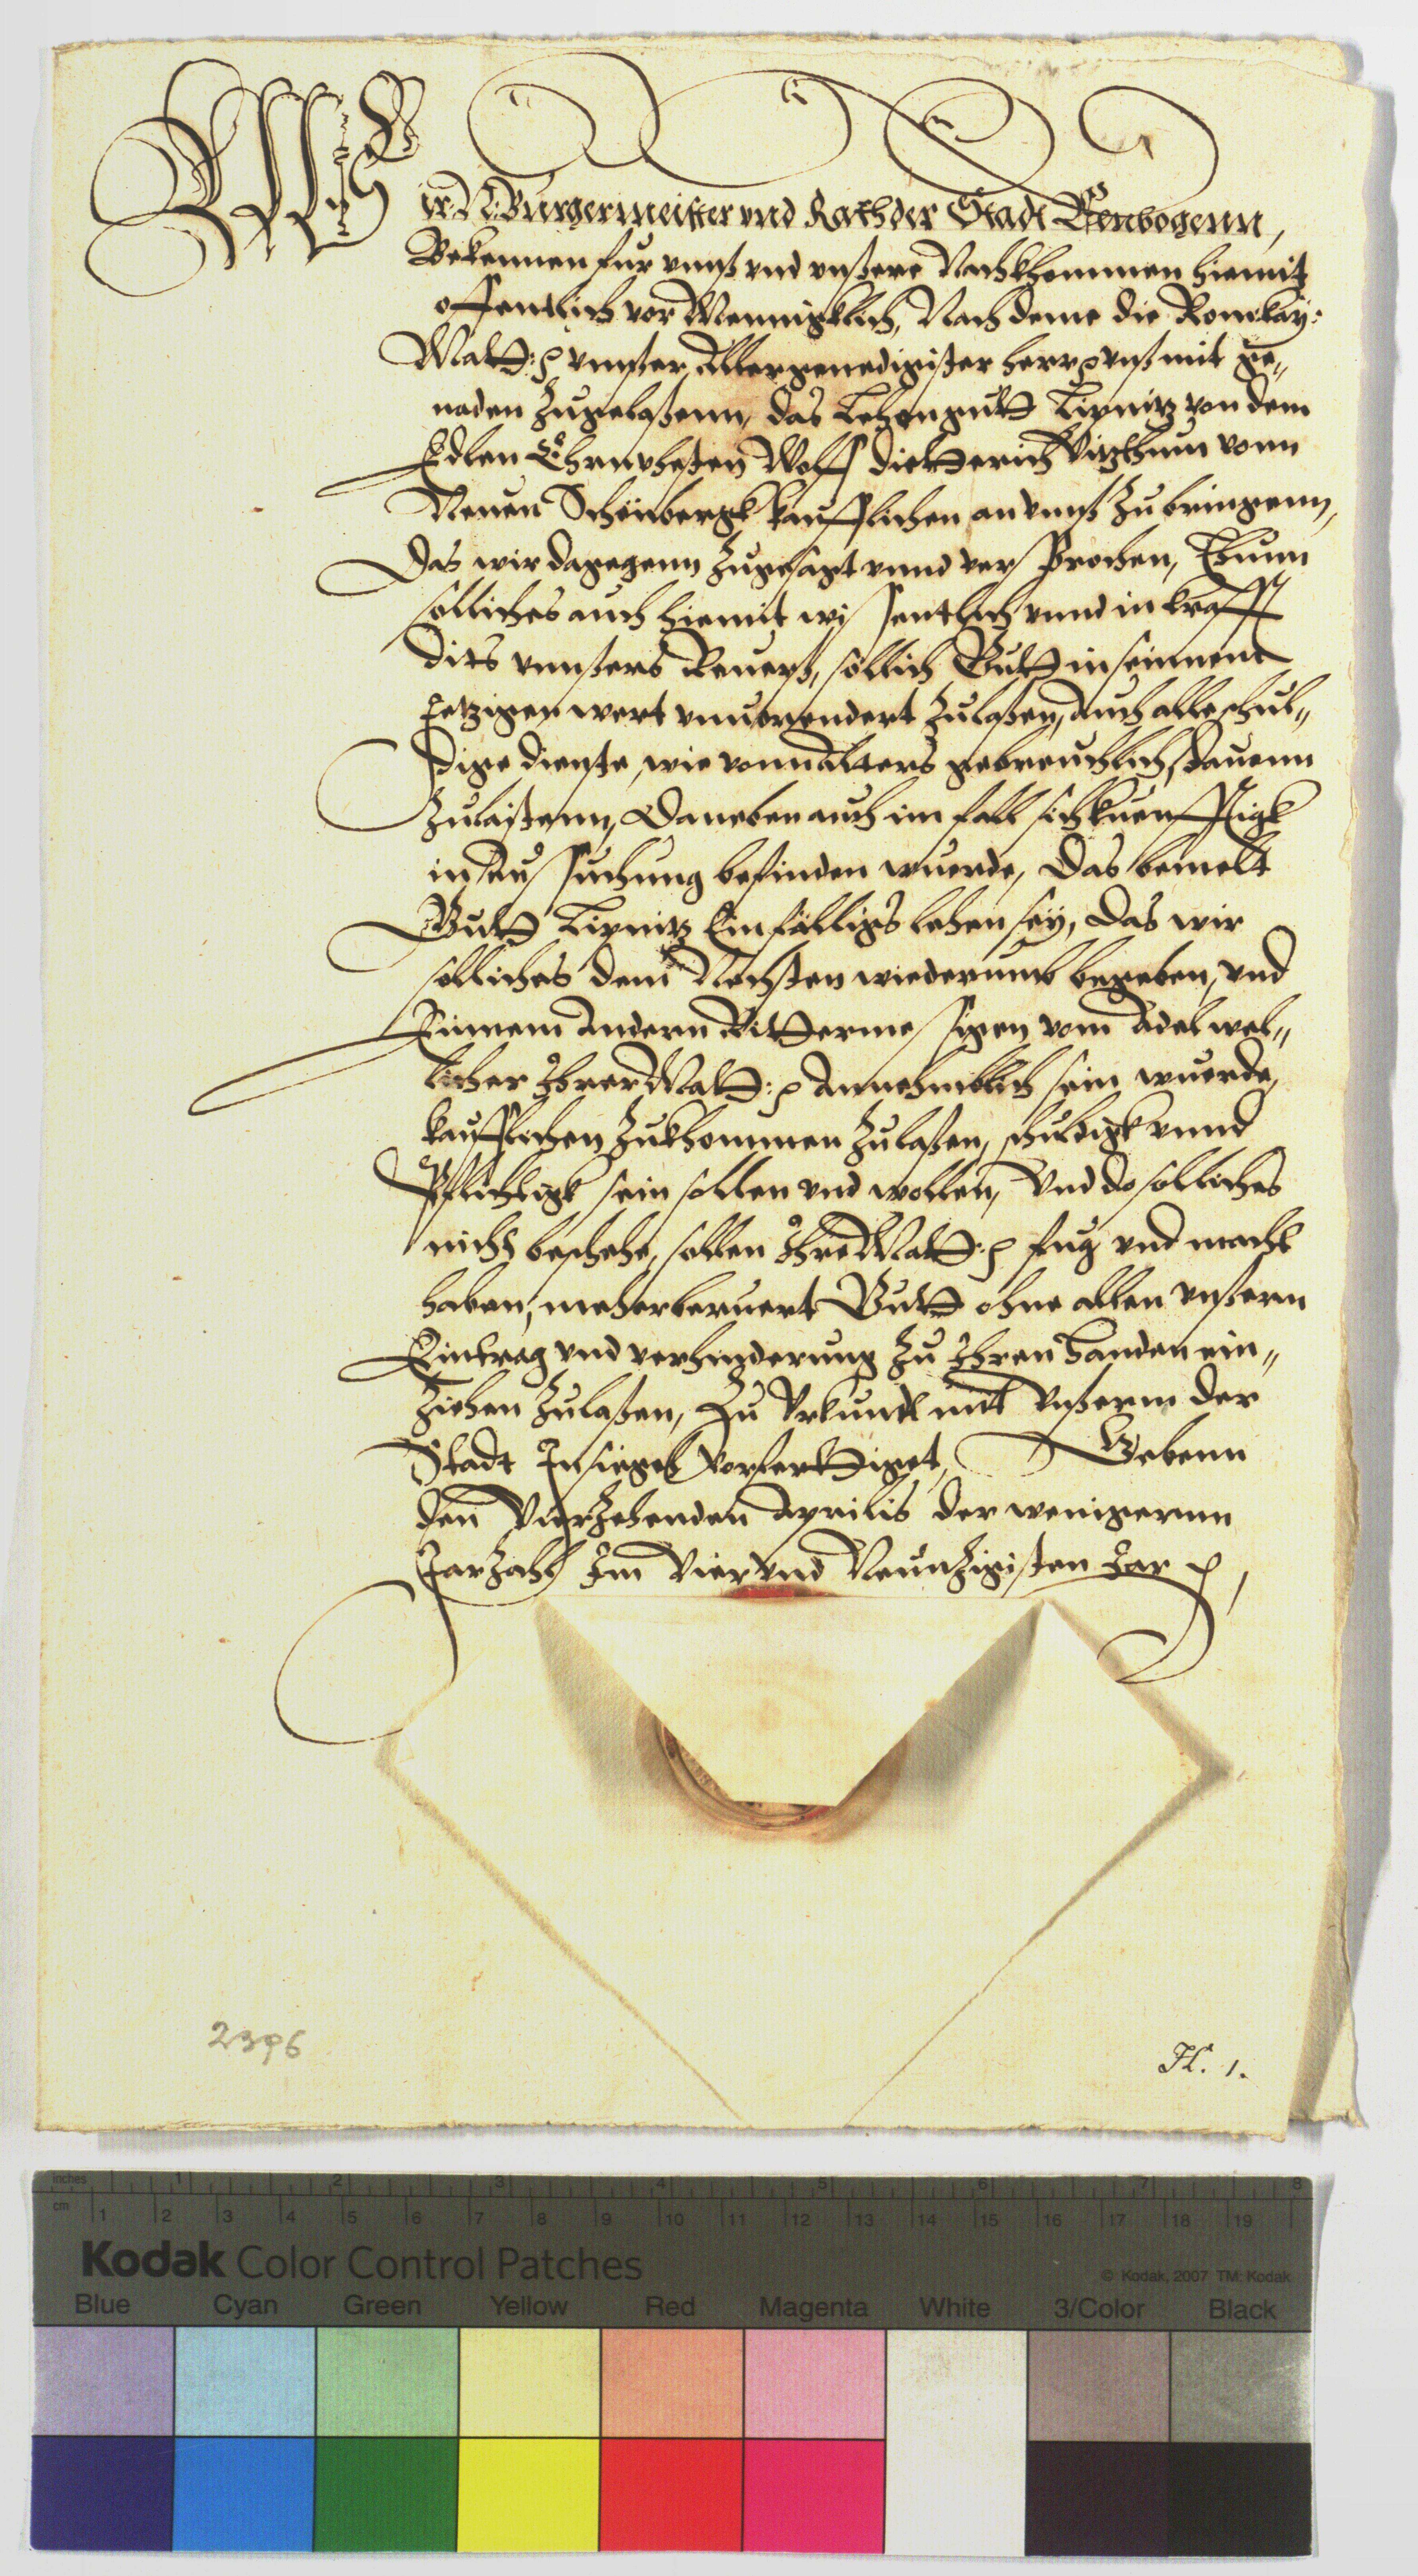 Wir N: Burgermeister vnd Rath der Stadt Elenbogenn,
Bekennen fur vnnß vnd vnßere Nachkhommen hiemit
offentlich vor Mennigklich, Nach deme die Rom: Kay:
Matt: vnnßer Allergenedigister herr vnß mit ge„
naden Zugelaßenn, das Lehengutt Lipnitz von dem
Edlen Ehrnvhesten Wolff Dietterich Vitzthum vonn
Neuen Schönbergk kaufflichen an vnnß Zubringenn,
Das wir dagegenn Zugesagt vnnd versprochen, Thunn
solliches auch hiemit wissentlich vnnd in krafft
dits vnnßers Reuerß, sollich Gutt in seinnem
Jetzigen wert vnuerendert Zulaßen, auch alle schul„
dige dienste, wie vonn alters gebreuchlich, dauonn
Zulaistenn, Daneben auch im fall sich kuenfftigk
in auß suchung befinden wuerde, Das bemelt
Gutt Lipnitz Ein fälligs lehen sey, das wir
solliches dem Nechsten wiederumb begeben, vnd
Einnem andern Rittermessigen vom Adel wel„
licher Ihrer Matt: Annehmblich sein wuerde,
kaufflichen Zukhommen Zulaßen, schuldigk vnnd
Pflichtigk sein sollen vnd wollen, Vnd do solliches
nicht beschehe, sollen Ihre Matt: fug vnd macht
haben, mehr beruert Gutt ohne allen vnßern
Eintrag vnd verhinderung Zu Ihren handen ein„
Ziehen Zulaßen, Zu Vrkundt mit Vnßerm der
Stadt Insiegel vorferttiget, Gebenn
den Vierzehenden Aprilis der wenigernn
Jarzahl Im Vier vnd Neunzigisten Jar
2396
H. 1.
inches 1 2 3 4 5 6 7 8
cm 1 2 3 4 5 6 7 8 9 10 11 12 13 14 15 16 17 18 19
Kodak Color Control Patches
© Kodak, 2007 TM: Kodak
Blue Cyan Green Yellow Red Magenta White 3/Color Black